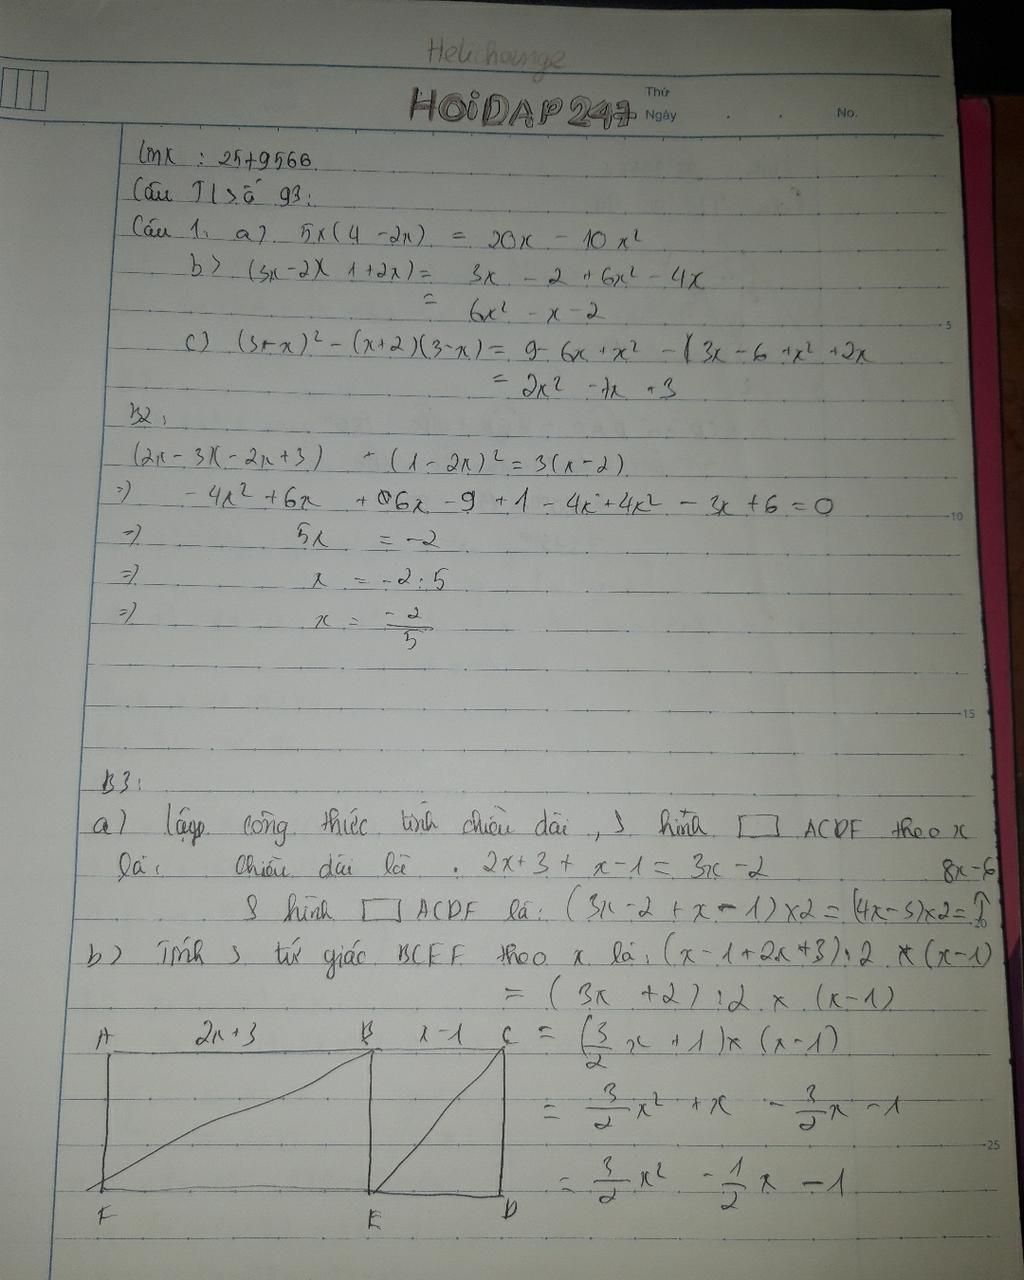 Helichange
HOiDAP 247
Thứ
Ngày
No.
Lmx : 25+9566
Câu Tl số 93:
Câu 1. a) 5x(4 - 2x) = 20x - 10x²
b) (3x-2)(1+2x) = 3x - 2 + 6x² - 4x
= 6x² - x - 2
5
c) (3-x)² - (x+2)(3-x) = 9 - 6x + x² - (3x - 6 + x² + 2x
= 2x² - 7x + 3
B2:
(2x - 3)(-2x+3) + (1-2x)² = 3(x-2)
=) - 4x² + 6x + 6x - 9 + 1 - 4x + 4x² - 3x + 6 = 0
10
=) 5x = -2
=) x = -2:5
=) x = -2/5
15
B3:
a) lập công thức tính chiều dài, S hình ▭ ACDF theo x
là: Chiều dài là : 2x+3 + x-1 = 3x-2 8x-6
S hình ▭ ACDF là: (3x-2 + x-1)x2 = (4x-3)x2 =
20
b) Tính S tứ giác BCEF theo x là: (x-1+2x+3):2 x (x-1)
= (3x + 2) : 2 x (x-1)
A 2x+3 B x-1 C = (3/2 x + 1) x (x-1)
= 3/2 x² + x - 3/2 x - 1
25
= 3/2 x² - 1/2 x - 1
F E D